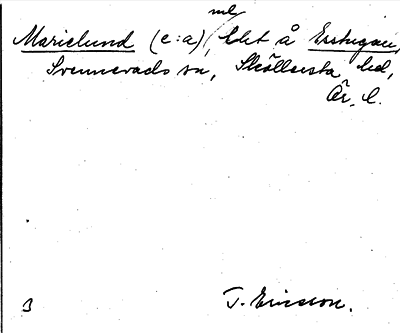 Marielund (e:a), ml lht å Esstugan,
Svennevads sn, Sköllersta hd,
Ör. l.
3 T. Ericsson.